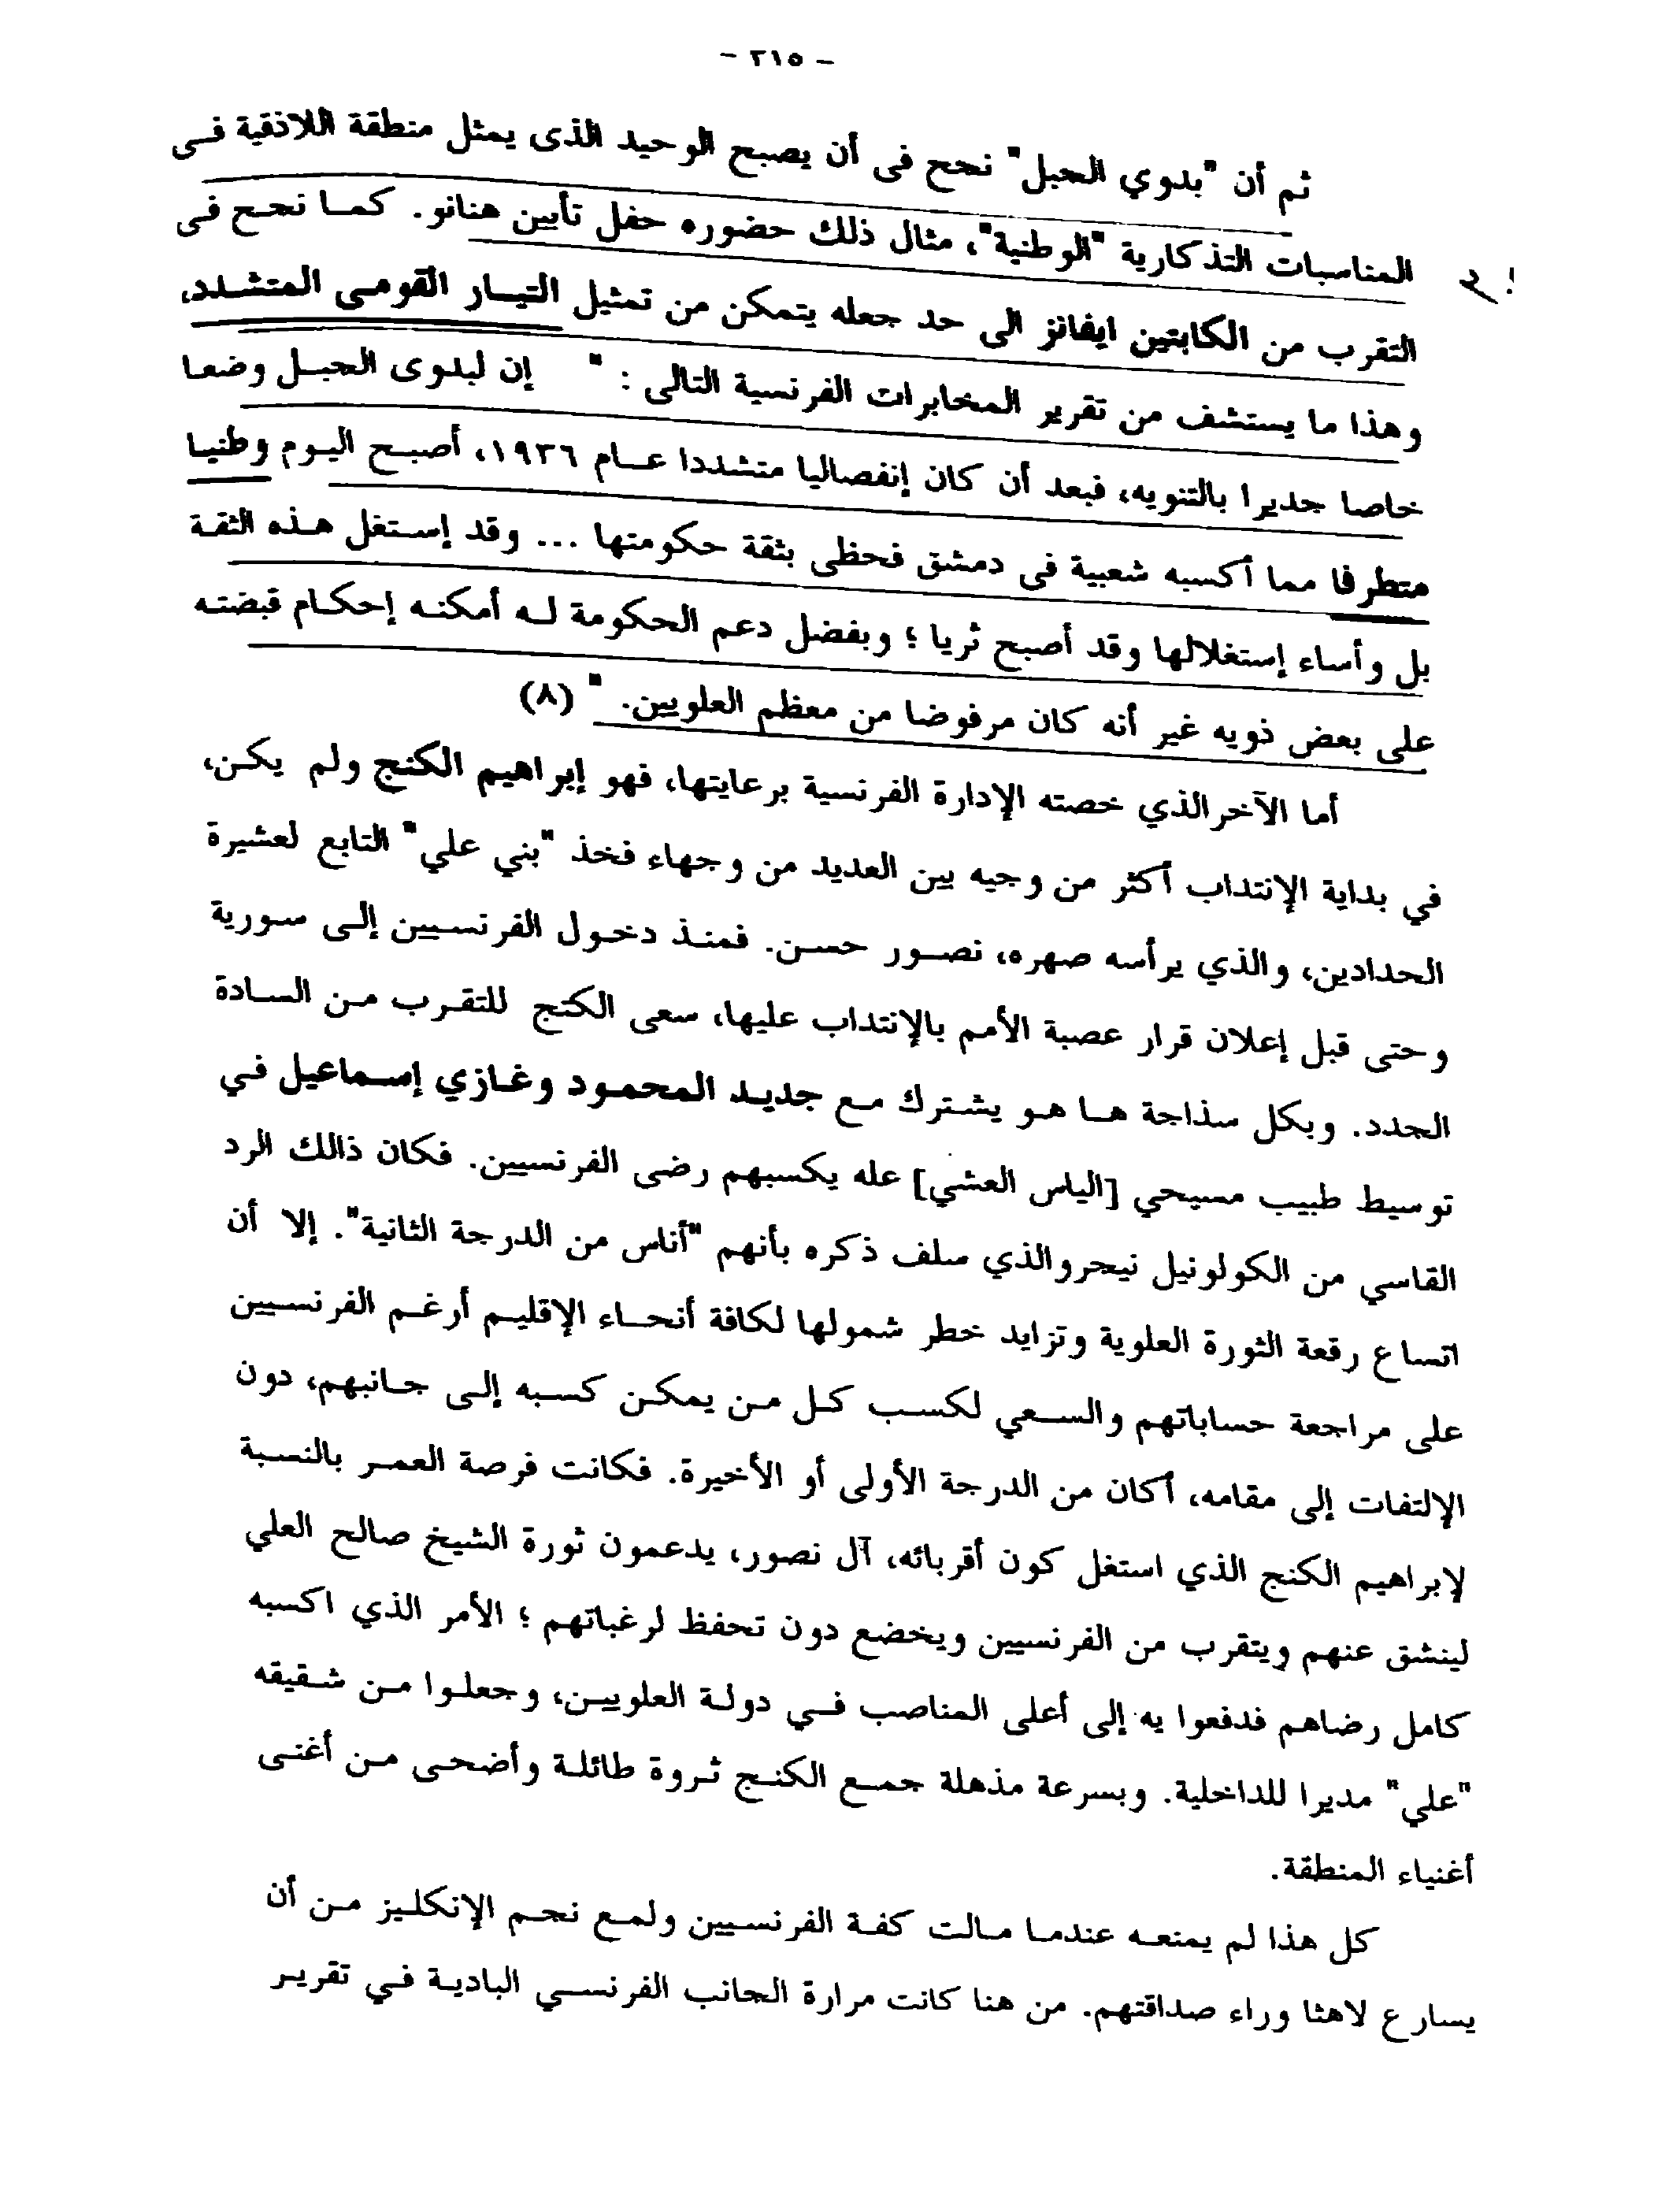 - ٢١٥ -
ثم أن "بدوي الجبل" نجح فى أن يصبح الوحيد الذى يمثل منطقة اللاذقية فـى
المناسبات التذكارية "الوطنية"، مثال ذلك حضوره حفل تأبين هنانو. كمـا نجـح فى
التقرب من الكابتين ايفانز الى حد جعله يتمكن من تمثيل التيـار القومـى المتشـدد،
وهذا ما يستشف من تقرير المخابرات الفرنسية التالى : " إن لبدوى الجبـل وضعا
خاصا جديرا بالتنويه، فبعد أن كان إنفصاليا متشددا عـام ١٩٣٦، أصبـح اليـوم وطنيـا
متطرفا مما أكسبه شعبية فى دمشق فحظى بثقة حكومتها ... وقد إسـتغل هـذه الثقـة
بل وأساء إستغلالها وقد أصبح ثريا ؛ وبفضل دعم الحكومة لـه أمكنـه إحكـام قبضتـه
على بعض ذويه غير أنه كان مرفوضا من معظم العلويين. " (٨)
أما الآخرالذي خصته الإدارة الفرنسية برعايتها، فهو إبراهيم الكنج ولم يكـن،
في بداية الإنتداب أكثر من وجيه بين العديد من وجهاء فخذ "بني علي" التابع لعشيرة
الحدادين، والذي يرأسه صهره، نصـور حسـن. فمنـذ دخـول الفرنسـيين إلـى سـورية
وحتى قبل إعلان قرار عصبة الأمم بالإنتداب عليها، سعى الكنج للتقـرب مـن السـادة
الجدد. وبكل سذاجة هـا هـو يشـترك مـع جديـد المحمـود وغـازي إسـماعيل في
توسيط طبيب مسيحي [الياس العشي] عله يكسبهم رضى الفرنسيين. فكان ذالك الرد
القاسي من الكولونيل نيجروالذي سلف ذكره بأنهم "أناس من الدرجة الثانية". إلا أن
اتساع رقعة الثورة العلوية وتزايد خطر شمولها لكافة أنحـاء الإقليـم أرغـم الفرنسـيين
على مراجعة حساباتهم والسـعي لكسـب كـل مـن يمكـن كسـبه إلـى جـانبهم، دون
الإلتفات إلى مقامه، أكان من الدرجة الأولى أو الأخيرة. فكانت فرصة العمـر بالنسـبة
لإبراهيم الكنج الذي استغل كون أقربائه، آل نصور، يدعمون ثورة الشيخ صالح العلي
لينشق عنهم ويتقرب من الفرنسيين ويخضع دون تحفظ لرغباتهم ؛ الأمر الذي اكسبه
كامل رضاهم فدفعوا به إلى أعلى المناصب فـي دولـة العلوييـن، وجعلـوا مـن شـقيقه
"علي" مديرا للداخلية. وبسرعة مذهلة جمـع الكنـج ثـروة طائلـة وأضحـى مـن أغنـى
أغنياء المنطقة.
كل هذا لم يمنعـه عندمـا مـالت كفـة الفرنسـيين ولمـع نجـم الإنكلـيز مـن أن
يسارع لاهثا وراء صداقتهم. من هنا كانت مرارة الجانب الفرنسـي الباديـة فـي تقريـر